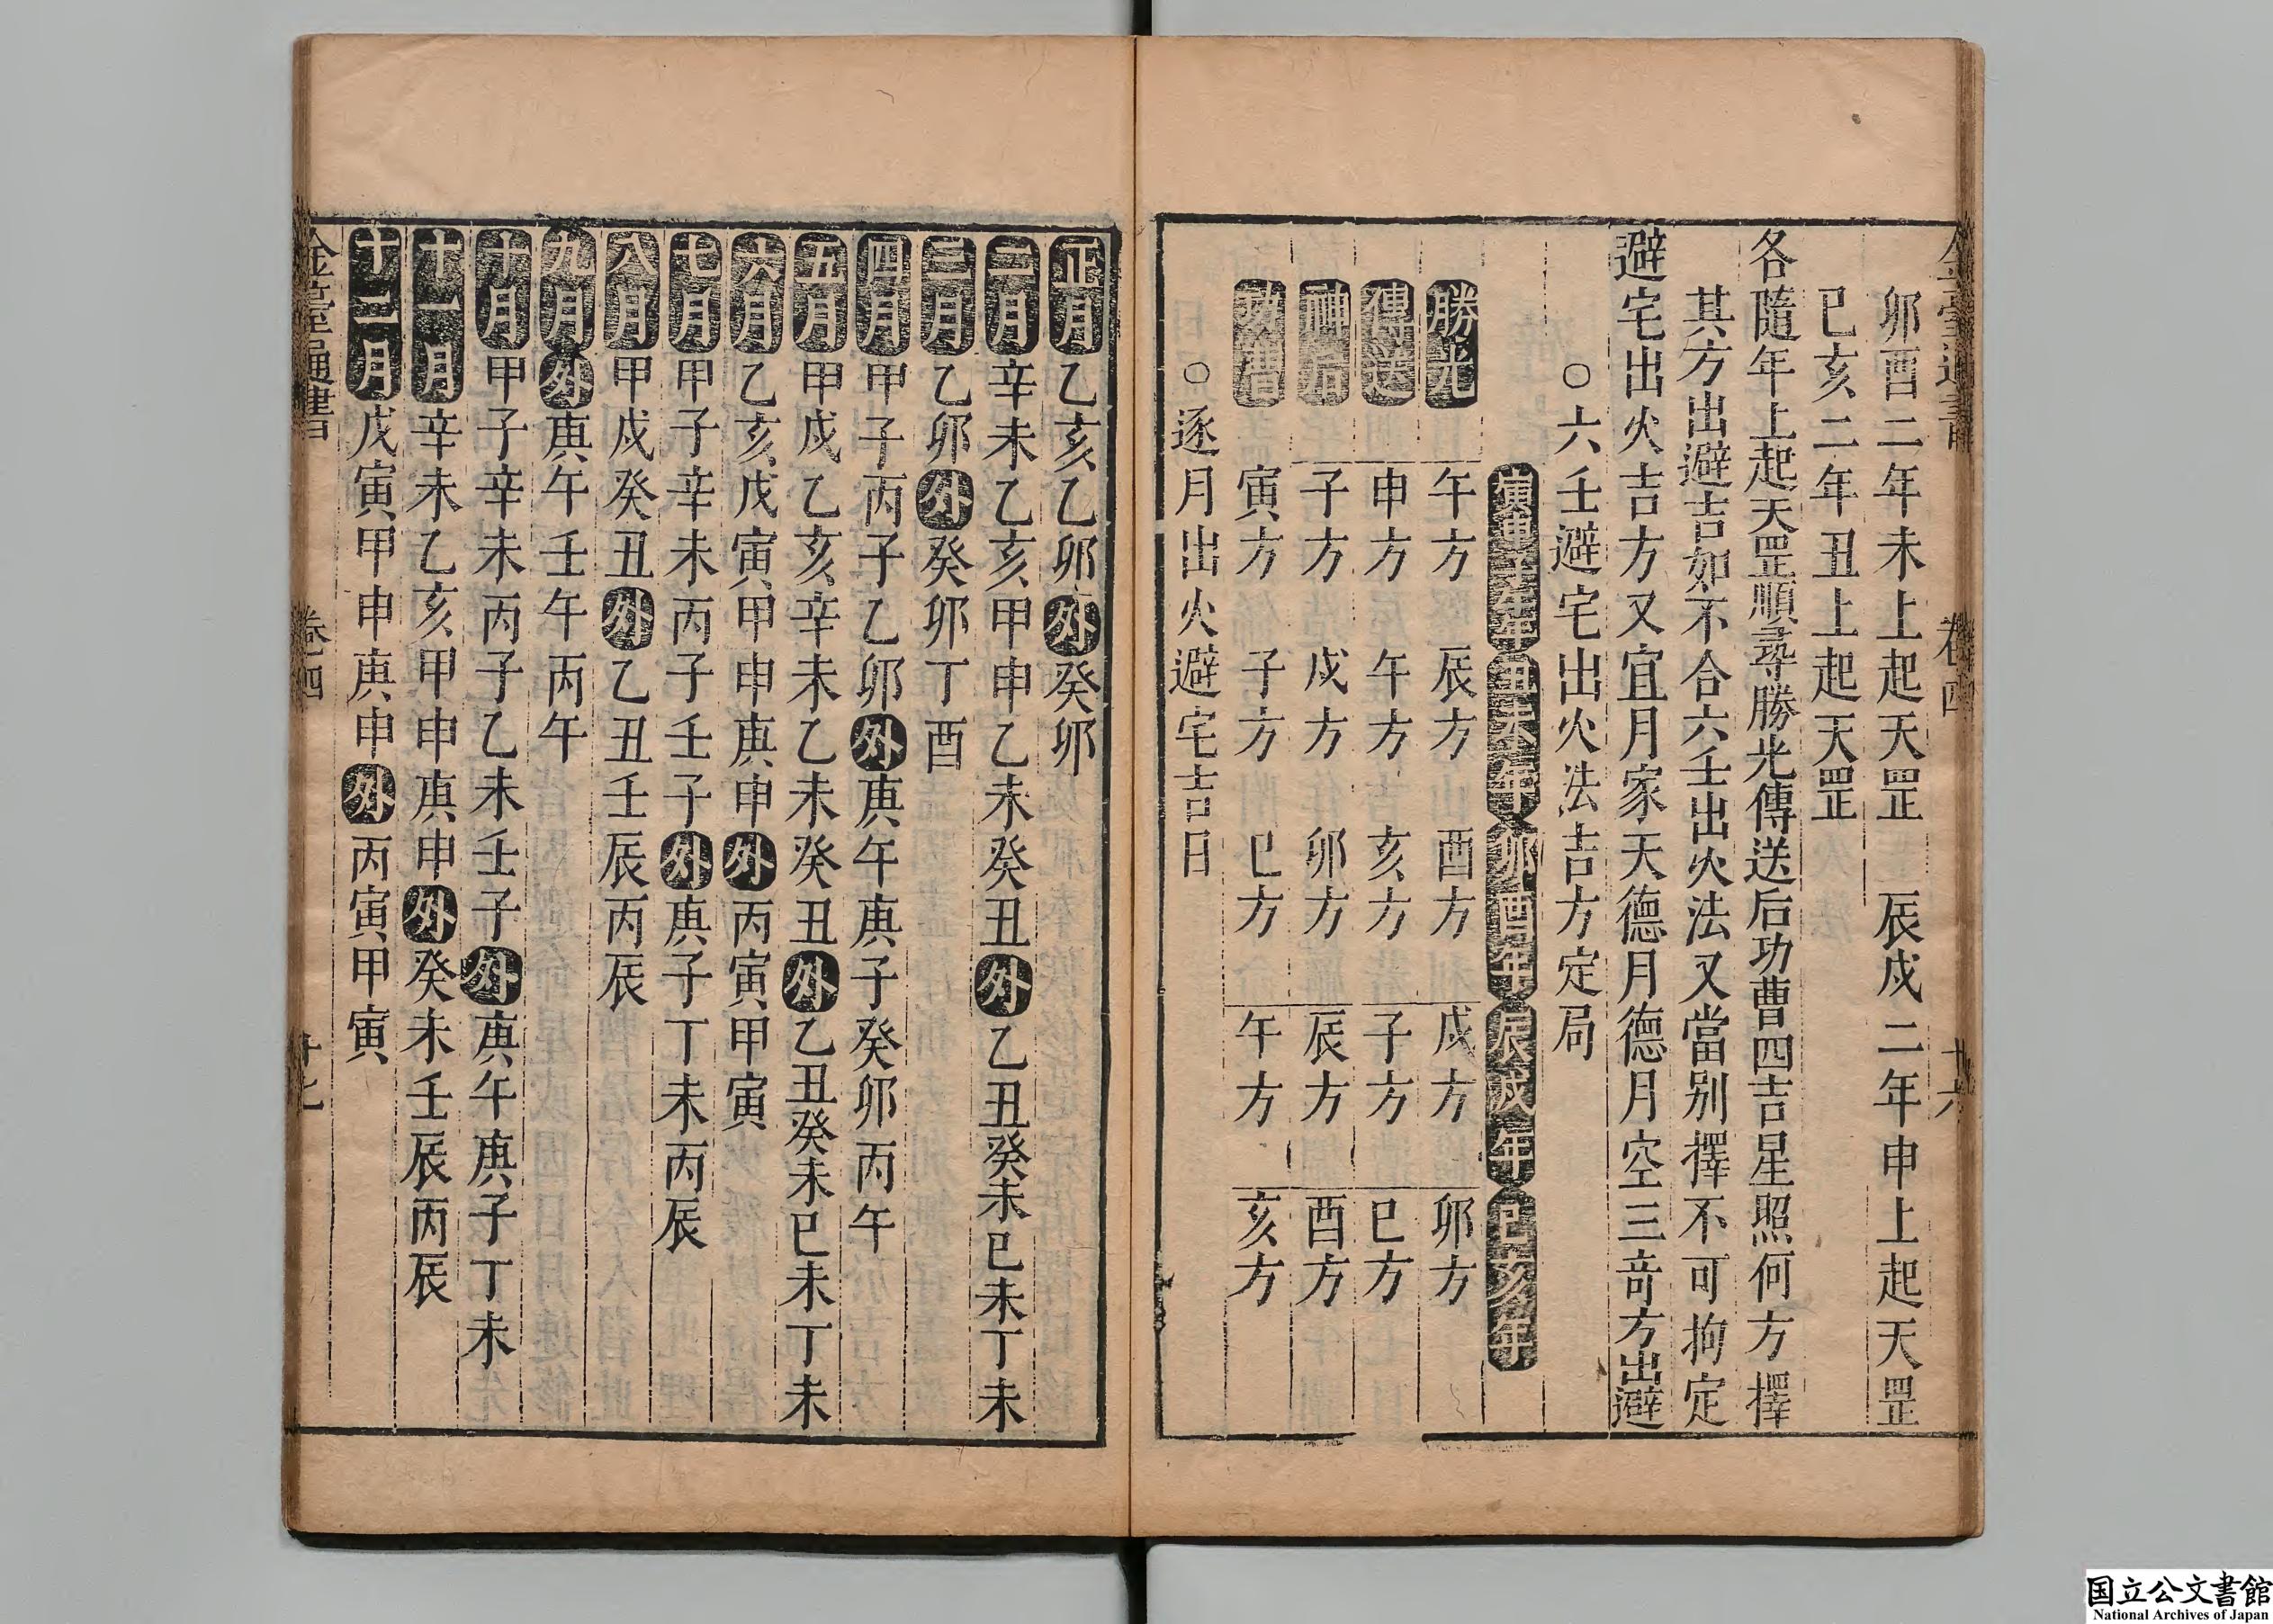 卯酉二年未上起天罡　辰戍二年申上起天罡
巳亥二年丑上起天罡
各隨年上起天罡順尋勝光傳送后功曹四吉星照何方擇
其方出避吉如不合六壬出火法又當别擇不可拘定
避宅出火吉方又宜月家天德月德月空三竒方出避
○六壬避宅出火法吉方定局
寅申子午年　丑未年　卯酉年　辰戍年　巳亥年
勝光　午方　辰方　酉方　戍方　卯方
傳送　申方　午方　亥方　子方　巳方
神后　子方　戍方　卯方　辰方　酉方
功曹　寅方　子方　巳方　午方　亥方
○逐月出火避宅吉日
卷四
正月乙亥乙卯外癸卯
二月辛未乙亥甲申乙未癸丑外乙丑癸未巳未丁未
三月乙卯外癸卯丁酉
四月甲子丙子乙卯外庚午庚子癸卯丙午
五月甲戍乙亥辛未乙未癸丑外乙丑癸未巳未丁未
六月乙亥戊寅甲申庚申外丙寅甲寅
七月甲子辛未丙子壬子外庚子丁未丙辰
八月甲戍癸丑外乙丑壬辰丙辰
九月外庚午壬午丙午
十月甲子辛未丙子乙未壬子外庚午庚子丁未
十一月辛未乙亥甲申庚申外癸未壬辰丙辰
十二月戊寅甲申庚申外丙寅甲寅
金臺通書　卷四
国立公文書館
National Archives of Japan